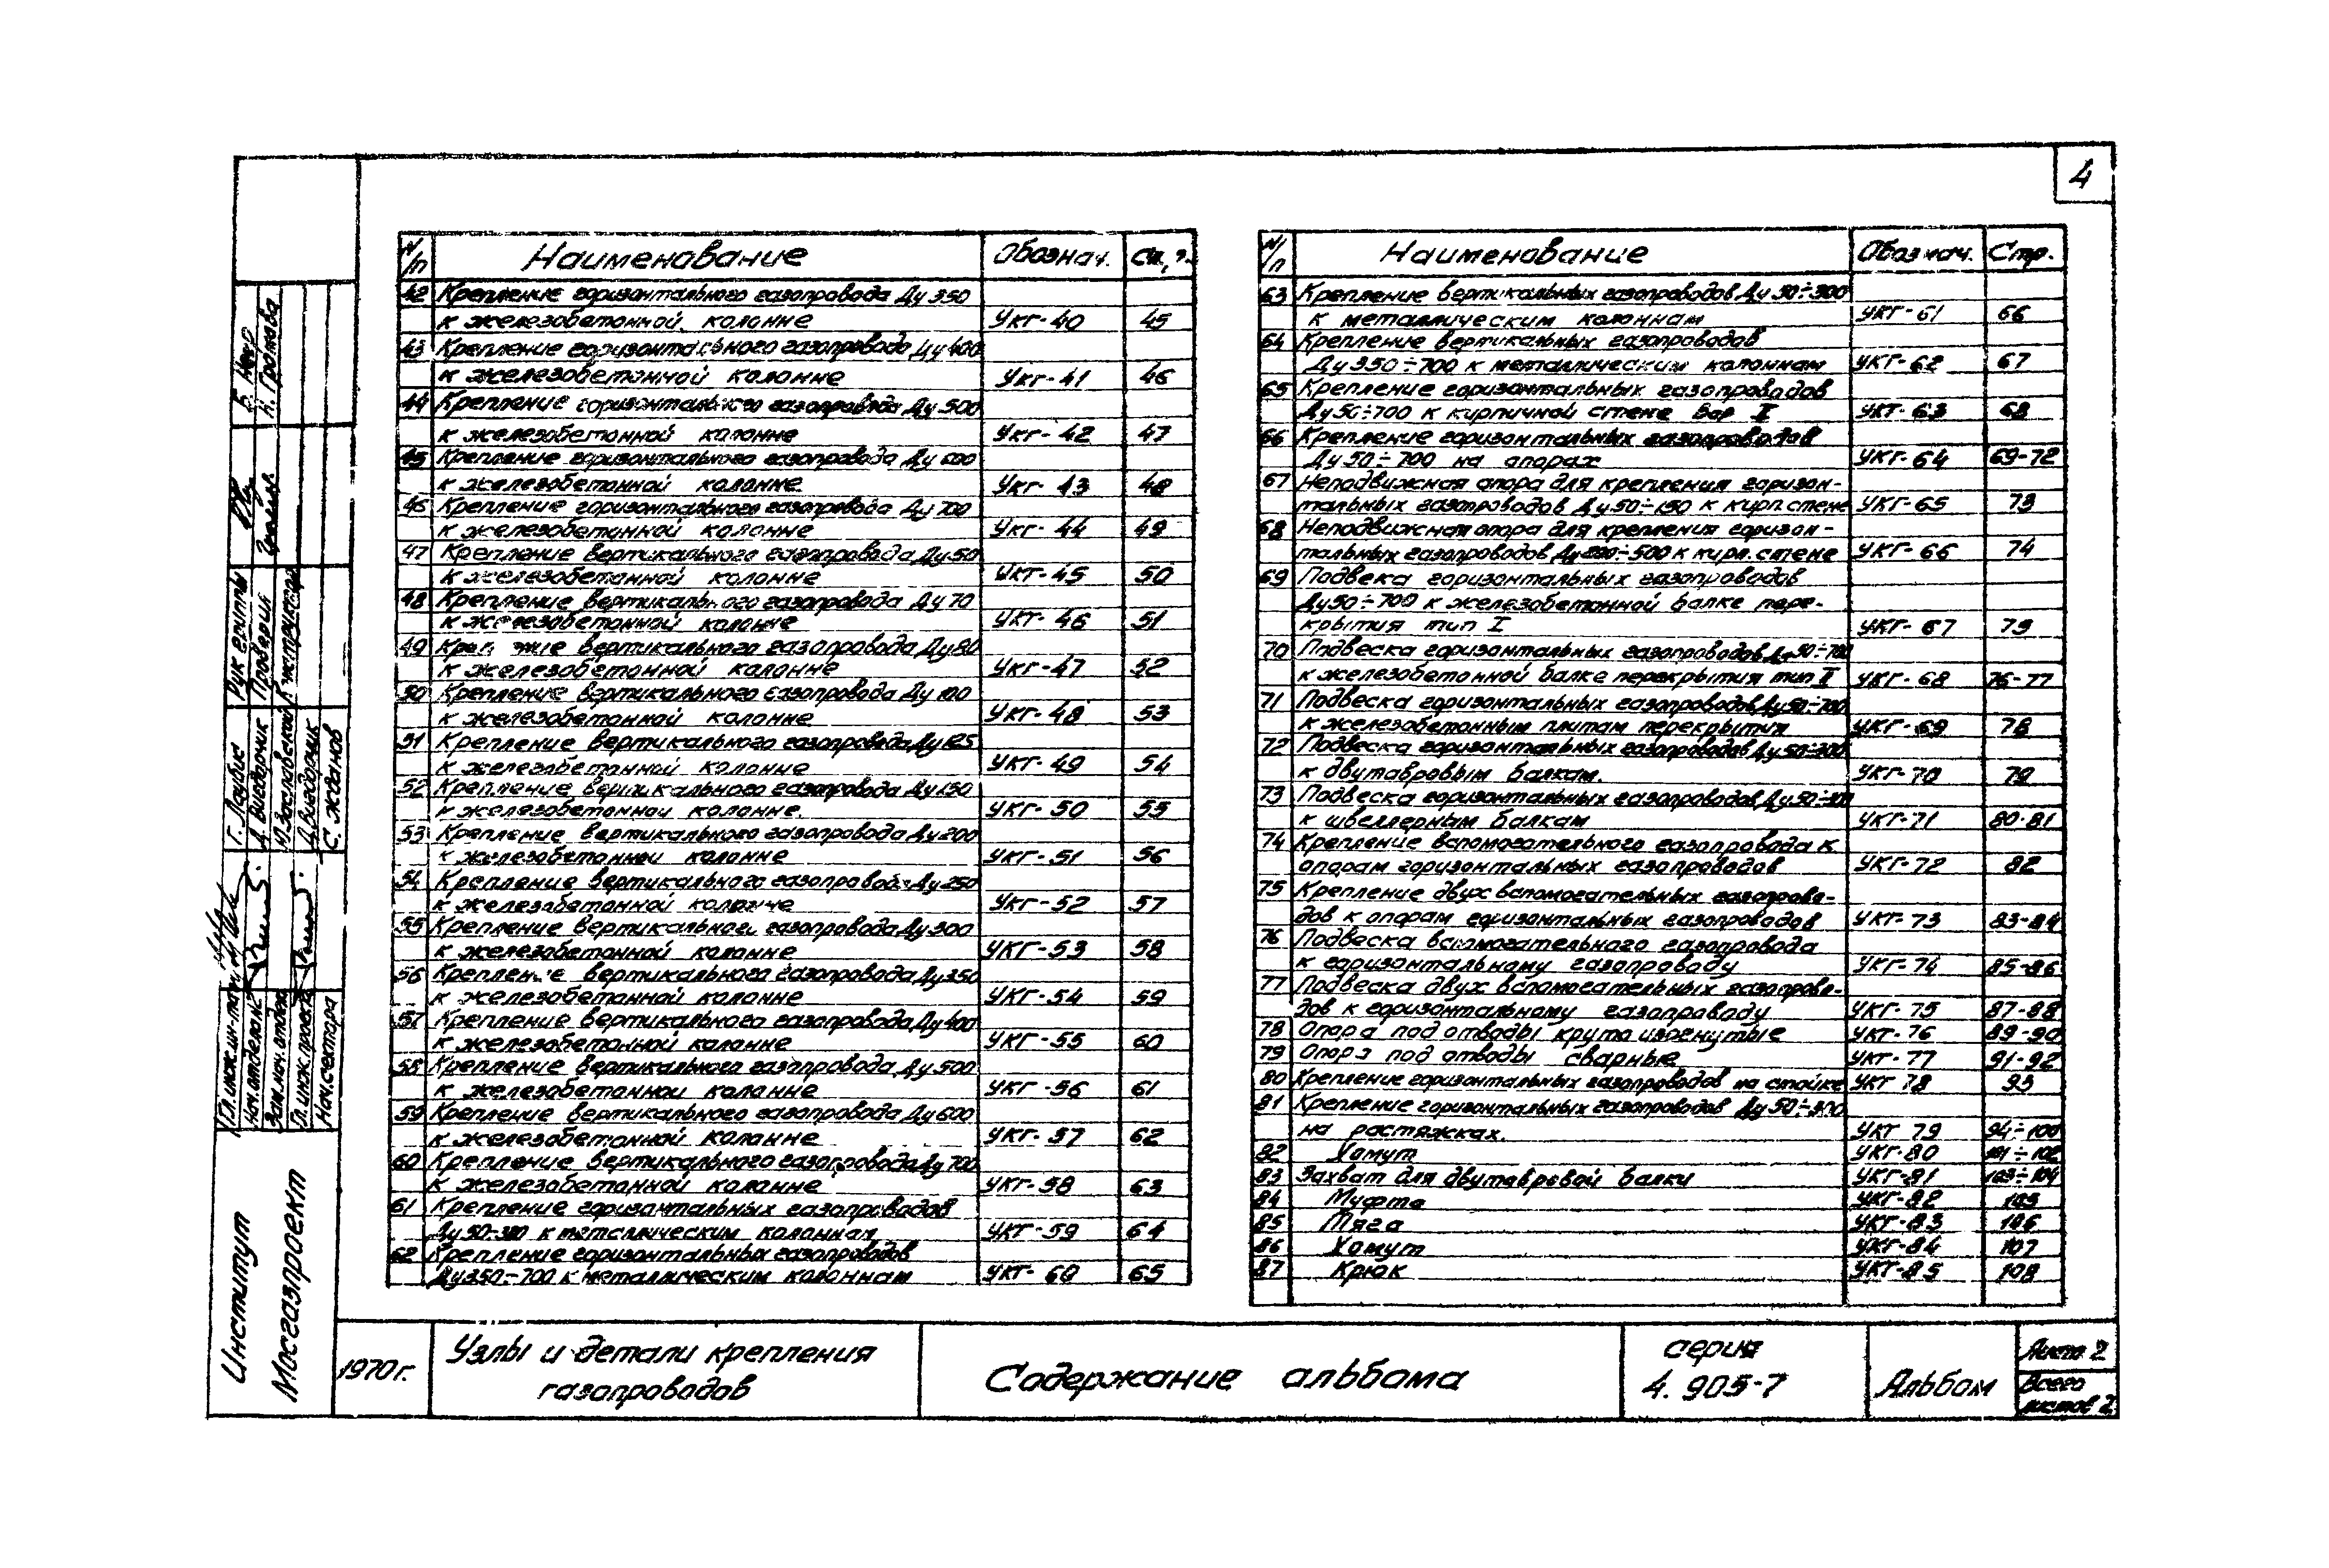 4
N/п Наименование Обознач. Стр.
42 Крепление горизонтального газопровода Ду 350
к железобетонной колонне УКГ-40 45
43 Крепление горизонтального газопровода Ду 400
к железобетонной колонне УКГ-41 46
44 Крепление горизонтального газопровода Ду 500
к железобетонной колонне УКГ-42 47
45 Крепление горизонтального газопровода Ду 600
к железобетонной колонне УКГ-43 48
46 Крепление горизонтального газопровода Ду 700
к железобетонной колонне УКГ-44 49
47 Крепление вертикального газопровода Ду 50
к железобетонной колонне УКГ-45 50
48 Крепление вертикального газопровода Ду 70
к железобетонной колонне УКГ-46 51
49 Крепление вертикального газопровода Ду 80
к железобетонной колонне УКГ-47 52
50 Крепление вертикального газопровода Ду 100
к железобетонной колонне УКГ-48 53
51 Крепление вертикального газопровода Ду 125
к железобетонной колонне УКГ-49 54
52 Крепление вертикального газопровода Ду 150
к железобетонной колонне. УКГ-50 55
53 Крепление вертикального газопровода Ду 200
к железобетонной колонне УКГ-51 56
54 Крепление вертикального газопровода Ду 250
к железобетонной колонне УКГ-52 57
55 Крепление вертикального газопровода Ду 300
к железобетонной колонне УКГ-53 58
56 Крепление вертикального газопровода Ду 350
к железобетонной колонне УКГ-54 59
57 Крепление вертикального газопровода Ду 400
к железобетонной колонне УКГ-55 60
58 Крепление вертикального газопровода Ду 500
к железобетонной колонне УКГ-56 61
59 Крепление вертикального газопровода Ду 600
к железобетонной колонне УКГ-57 62
60 Крепление вертикального газопровода Ду 700
к железобетонной колонне УКГ-58 63
61 Крепление горизонтальных газопроводов
Ду 50-300 к металлическим колоннам УКГ-59 64
62 Крепление горизонтальных газопроводов
Ду 350-700 к металлическим колоннам УКГ-60 65
N/п Наименование Обознач. Стр.
63 Крепление вертикальных газопроводов Ду 50÷300
к металлическим колоннам УКГ-61 66
64 Крепление вертикальных газопроводов
Ду 350÷700 к металлическим колоннам УКГ-62 67
65 Крепление горизонтальных газопроводов
Ду 50÷700 к кирпичной стене Вар I УКГ-63 68
66 Крепление горизонтальных газопроводов
Ду 50÷700 на опорах УКГ-64 69-72
67 Неподвижная опора для крепления горизон-
тальных газопроводов Ду 50÷150 к кирп.стене УКГ-65 73
68 Неподвижная опора для крепления горизон-
тальных газопроводов Ду 200÷500 к кирп. стене УКГ-66 74
69 Подвека горизонтальных газопроводов
Ду 50÷700 к железобетонной балке пере-
крытия тип I УКГ-67 75
70 Подвеска горизонтальных газопроводов Ду 50÷700
к железобетонной балке перекрытия тип II УКГ-68 76-77
71 Подвеска горизонтальных газопроводов Ду 50÷700
к железобетонным плитам перекрытия УКГ-69 78
72 Подвеска горизонтальных газопроводов Ду 50÷300
к двутавровым балкам. УКГ-70 79
73 Подвеска горизонтальных газопроводов Ду 50÷300
к швеллерным балкам УКГ-71 80-81
74 Крепление вспомогательного газопровода к
опорам горизонтальных газопроводов УКГ-72 82
75 Крепление двух вспомогательных газопрово-
дов к опорам горизонтальных газопроводов УКГ-73 83-84
76 Подвеска вспомогательного газопровода
к горизонтальному газопроводу УКГ-74 85-86
77 Подвеска двух вспомогательных газопрово-
дов к горизонтальному газопроводу УКГ-75 87-88
78 Опора под отводы круто изогнутые УКГ-76 89-90
79 Опора под отводы сварные УКГ-77 91-92
80 Крепление горизонтальных газопроводов на стойке УКГ 78 93
81 Крепление горизонтальных газопроводов Ду 50÷300
на растяжках. УКГ 79 94÷100
82 Хомут УКГ-80 101÷102
83 Захват для двутавровой балки УКГ-81 103÷104
84 Муфта УКГ-82 105
85 Тяга УКГ-83 106
86 Хомут УКГ-84 107
87 Крюк УКГ-85 108
Гл.инж.ин-та
Нач.отделения
Зам.нач.отдела
Гл.инж.проекта
Нач.сектора
Д. Выедорчик
Ю.Заславский
С. Жданов
Рук группы
Проверил
Институт
Мосгазпроект
1970г.
Узлы и детали крепления
газопроводов
Содержание альбома
серия
4. 905-7
Альбом
Лист 2
Всего
листов 2